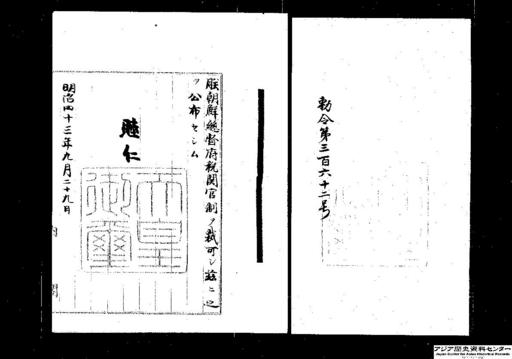 勅令第三百六十二号
朕朝鮮総督府税関官制ヲ裁可シ茲ニ之
ヲ公布セシム
睦仁
天皇御璽
明治四十三年九月二十九日
内閣
アジア歴史資料センター
Japan Center for Asian Historical Records